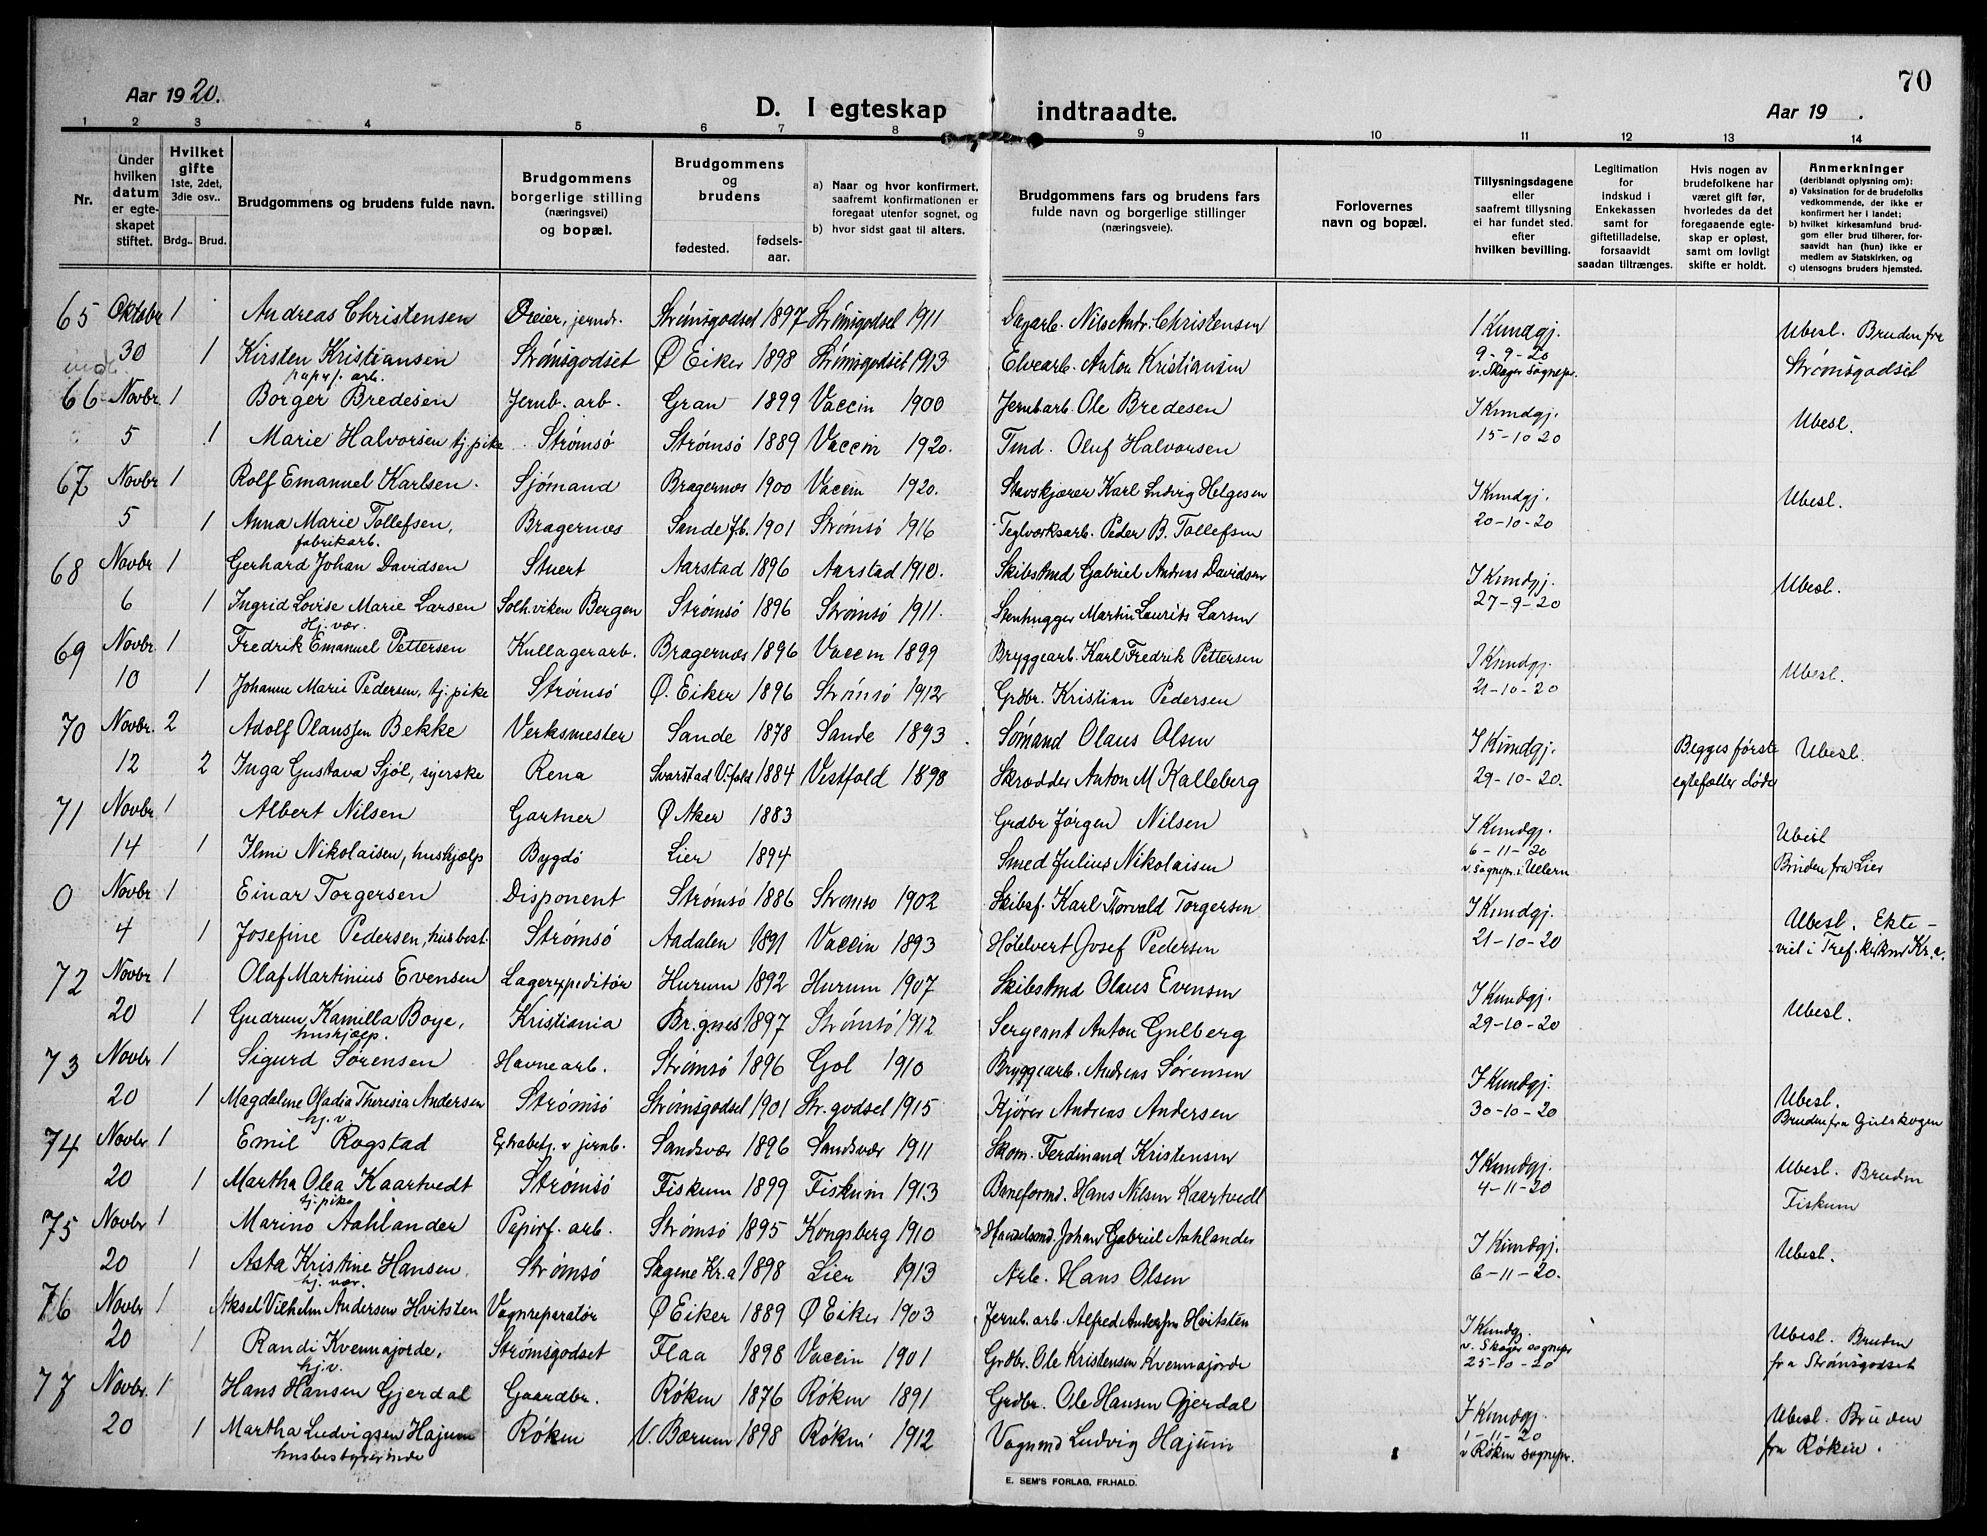 70
Aar 1920.
D. I egteskap indtraadte.
Aar 19 .
1 2 3 4 5 6 7 8 9 10 11 12 13 14
Nr.
Under hvilken datum er egteskapet stiftet.
Hvilket gifte 1ste, 2det, 3die osv..
Brdg.. Brud.
Brudgommens og brudens fulde navn.
Brudgommens borgerlige stilling (næringsvei) og bopæl.
Brudgommens og brudens
fødested. fødsels-aar.
a) Naar og hvor konfirmert, saafremt konfirmationen er foregaat utenfor sognet, og
b) hvor sidst gaat til alters.
Brudgommens fars og brudens fars fulde navn og borgerlige stillinger (næringsveie).
Forlovernes navn og bopæl.
Tillysningsdagene eller saafremt tillysning ei har fundet sted. efter hvilken bevilling.
Legitimation for Indskud i Enkekassen samt for giftetilladelse, forsaavidt saadan tiltrænges.
Hvis nogen av brudefolkene har været gift før, hvorledes da det foregaaende egteskap er opløst, samt om lovligt skifte er holdt.
Anmerkninger (deriblandt oplysning om):
a) Vaksination for de brudefolks vedkommende, der ikke er konfirmert her i landet;
b) hvilket kirkesamfund brudgom eller brud tilhører, forsaavidt han (hun) ikke er medlem av Statskirken, og
c) utensogns bruders hjemsted.
65 Oktober 1 Andreas Christensen Dreier, jernv. Strømsgodset 1897 Strømsgodset 1911 Dagarb. Nils Andr. Christensen I Kundgj. Ubesl. Bruden fra
30 1 Kirsten Kristiansen Strømsgodset Ø Eiker 1898 Strømsgodset 1913 Elvearb. Anton Kristiansen 9-9-20 Strømsgodset
papirf. arb. v. Skoger sognepr.
66 Novbr. 1 Borger Bredesen Jernb. arb. Gran 1899 Vaccin 1900 Jernbarb. Ole Bredesen I Kundgj. Ubesl.
5 1 Marie Halvorsen tj. pike Strømsø Strømsø 1889 Vaccin 1920. Tmd. Oluf Halvorsen 15-10-20
67 Novbr 1 Rolf Emanuel Karlsen. Sjømand Bragernes 1900 Vaccin 1920. Stavskjærer Karl Ludvig Helgesen I Kundgj. Ubesl.
5 1 Anna Marie Tollefsen, Bragernes Sande Jb. 1901 Strømsø 1916 Teglverksarb. Peder B. Tollefsen 20-10-20
fabrikarb.
68 Novbr 1 Gerhard Johan Davidsen Stuert Aarstad 1896 Aarstad 1910. Skibstmd Gabriel Andreas Davidsen I Kundgj. Ubesl.
6 1 Ingrid Lovise Marie Larsen Solh.viken Bergen Strømsø 1896 Strømsø 1911. Stenhugger Martin Laurits Larsen 27-9-20
Hj. vær.
69 Novbr. 1 Fredrik Emanuel Pettersen Kullagerarb. Bragernes 1896 Vaccin 1899 Bryggearb. Karl Fredrik Pettersen I Kundgj. Ubesl.
10 1 Johanne Marie Pedersen, tj. pike Strømsø Ø. Eiker 1896 Strømsø 1912 Grdbr. Kristian Pedersen 21-10-20
70 Novbr. 2 Adolf Olaussen Bekke Verksmester Sande 1878 Sande 1893. Sømand Olaus Olsen I Kundgj. Begges første Ubesl.
12 2 Inga Gustava Sjøl, syerske Rena Svarstad V.fold 1884 Vestfold 1898 Skrædder Anton M Kalleberg 29-10-20. egtefæller døde
71 Novbr 1 Albert Nilsen Gartner Ø Aker 1883 Grdbr Jørgen Nilsen I Kundgj. Ubesl
14 1 Ilmi Nikolaisen, huskjælp Bygdø Lier 1894 Smed Julius Nikolaisen 6-11-20 Bruden fra Lier
v. sognepr. i Ullern
0 Novbr 1 Einar Torgersen Disponent Strømsø 1886 Strømsø 1902 Skibsf. Karl Thorvald Torgersen I Kundgj. Ubesl. Ekte-
4 1 Josefine Pedersen, husbest. Strømsø Aadalen 1891 Vaccin 1893 Hotelvert Josef Pedersen 21-10-20 viet i Tref. kirken Kr.a.
72 Novbr 1 Olaf Martinius Evensen Lagerexpeditør Hurum 1892 Hurum 1907 Skibstmd Olaus Evensen I Kundgj. Ubesl.
20 1 Gudrun Kamilla Boye, Kristiania Br.gnes 1897 Strømsø 1912 Sergeant Anton Gulberg 29-10-20
huskjælp.
73 Novbr 1 Sigurd Sørensen Havnearb. Strømsø 1896 Gol 1910 Bryggearb. Andreas Sørensen I Kundgj. Ubesl.
20 1 Magdalene Oladia Theresia Andersen Strømsø Strømsgodset 1901 Str.godset 1915 Kjører Andreas Andersen 30-10-20 Bruden fra Gulskogen
hj. v.
74 Novbr 1 Emil Rogstad Extrabetj. v jernb. Sandsvær 1896 Sandsvær 1911 Skom. Ferdinand Kristensen I Kundgj. Ubesl. Bruden
20 1 Martha Olea Kaartvedt Strømsø Fiskum 1899 Fiskum 1913 Baneformd. Hans Nilsen Kaartvedt 4-11-20 Fiskum
tj. pike
75 Novbr 1 Marino Aahlander Papirf. arb. Strømsø 1895 Kongsberg 1910 Handelsmd. Johan Gabriel Aahlander I Kundgj. Ubesl.
20 1 Asta Kristine Hansen. Strømsø Sagene Kr.a 1898 Lier 1913 Arb. Hans Olsen 6-11-20.
hj. vær.
76 Novbr 1 Aksel Vilhelm Andersen Hvitsten Vognreparatør Ø Eiker 1889 Ø Eiker 1903 Jernb. arb. Alfred Andersen Hvitsten I Kundgj. Ubesl. Bruden
20 1 Randi Kvennajorde, Strømsgodset Flaa 1898 Vaccin 1901 Grdbr. Ole Kristensen Kvennajorde v. Skoger sognepr fra Strømsgodset
hj. v. 25-10-20
77 Novbr. 1 Hans Hansen Gjerdal Gaardbr. Røken 1876 Røken 1891 Grdbr. Ole Hansen Gjerdal I Kundgj. Ubesl. Bruden
20 1 Martha Ludvigsen Hajum Røken V. Bærum 1898 Røken 1912 Vognmd Ludvig Hajum 1-11-20 fra Røken.
husbestyrerinde v Røken sognepr.
E. SEM'S FORLAG, FR.HALD.